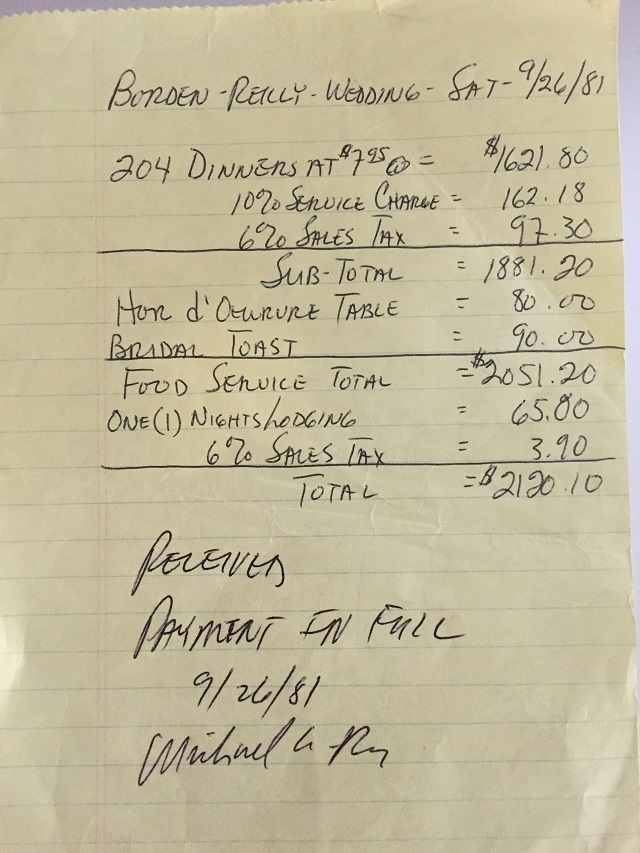 BORDEN-REILLY-WEDDING-SAT-9/26/81
204 DINNERS AT $7.95 @ = $1621.80
10% SERVICE CHARGE = 162.18
6% SALES TAX = 97.30
SUB-TOTAL = 1881.20
HOR d'OEURURE TABLE = 80.00
BRIDAL TOAST = 90.00
FOOD SERVICE TOTAL = $2051.20
ONE (1) NIGHTS LODGING = 65.00
6% SALES TAX = 3.90
TOTAL = $2120.10
RECEIVED
PAYMENT IN FULL
9/26/81
Michael